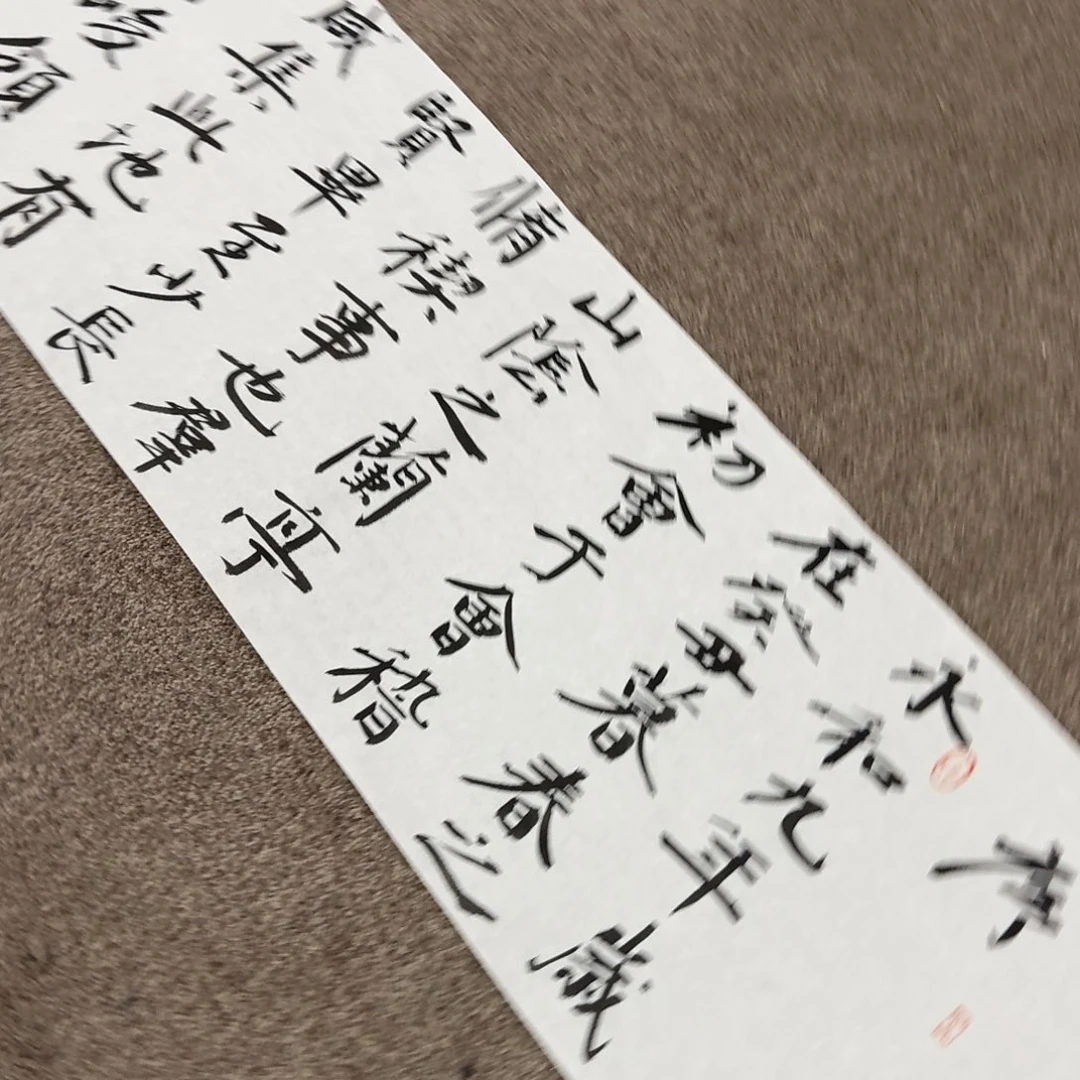 永和九年歲
在癸丑暮春之
初會于會稽
山陰之蘭亭
脩禊事也羣
賢畢至少長
咸集此地有
峻領